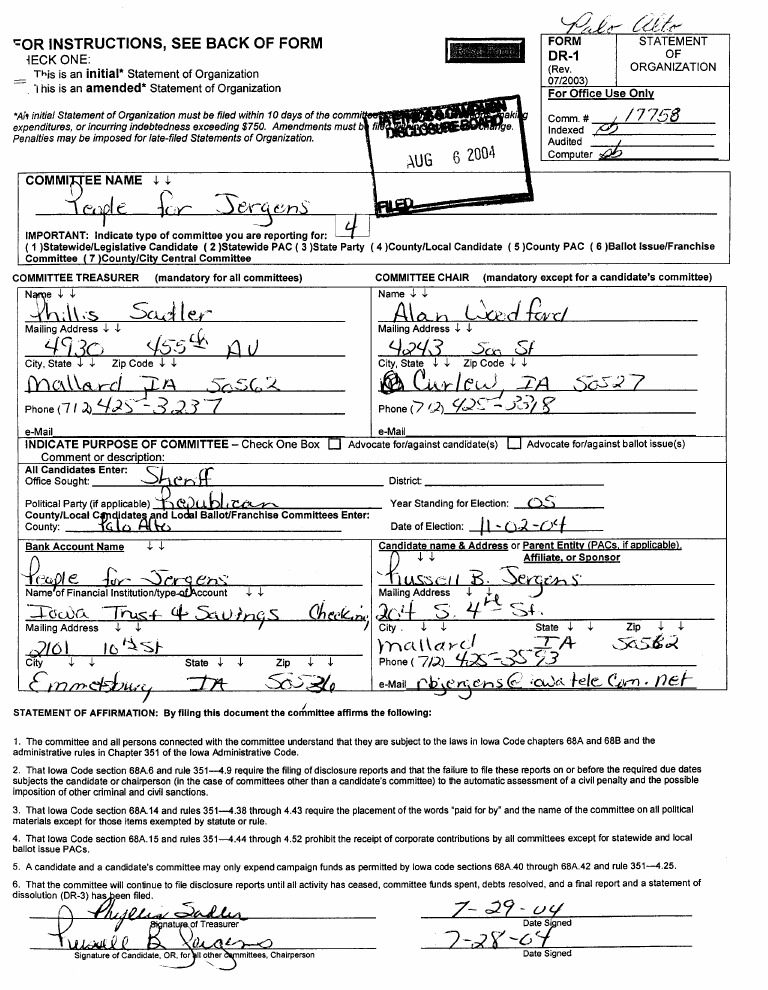 Palo Alto
FOR INSTRUCTIONS, SEE BACK OF FORM
HECK ONE:
This is an initial* Statement of Organization
This is an amended* Statement of Organization
FORM
DR-1
(Rev.
07/2003)
STATEMENT
OF
ORGANIZATION
For Office Use Only
Comm. # 17758
Indexed
Audited
Computer
*An initial Statement of Organization must be filed within 10 days of the committee making
expenditures, or incurring indebtedness exceeding $750. Amendments must be filed change.
Penalties may be imposed for late-filed Statements of Organization.
ETHICS & CAMPAIGN
DISCLOSURE BOARD
AUG 6 2004
FILED
COMMITTEE NAME ↓ ↓
People for Jergens
IMPORTANT: Indicate type of committee you are reporting for: 4
( 1 )Statewide/Legislative Candidate ( 2 )Statewide PAC ( 3 )State Party ( 4 )County/Local Candidate ( 5 )County PAC ( 6 )Ballot Issue/Franchise
Committee ( 7 )County/City Central Committee
COMMITTEE TREASURER (mandatory for all committees)
Name ↓ ↓
Phillis Sadler
Mailing Address ↓ ↓
4930 455th AV
City, State ↓ ↓ Zip Code ↓ ↓
Mallard IA 50562
Phone (712) 425-3237
e-Mail
COMMITTEE CHAIR (mandatory except for a candidate's committee)
Name ↓ ↓
Alan Woodford
Mailing Address ↓ ↓
4243 St
City, State ↓ ↓ Zip Code ↓ ↓
Curlew, IA 50527
Phone (712) 425-3318
e-Mail
INDICATE PURPOSE OF COMMITTEE – Check One Box Advocate for/against candidate(s) Advocate for/against ballot issue(s)
Comment or description:
All Candidates Enter:
Office Sought: Sheriff
District:
Political Party (if applicable) Republican
Year Standing for Election: 05
County/Local Candidates and Local Ballot/Franchise Committees Enter:
County: Palo Alto
Date of Election: 11-02-04
Bank Account Name ↓ ↓
People for Jergens
Name of Financial Institution/type of Account ↓ ↓
Iowa Trust & Savings Checking
Mailing Address ↓ ↓
2101 10th St
City ↓ ↓ State ↓ ↓ Zip ↓ ↓
Emmetsburg IA 50536
Candidate name & Address or Parent Entity (PACs, if applicable),
Affiliate, or Sponsor
Russell B. Jergens
Mailing Address ↓ ↓
204 S. 4th St.
City ↓ ↓ State ↓ ↓ Zip ↓ ↓
Mallard IA 50562
Phone (712) 425-3593
e-Mail rbjergens@iowatelecom.net
STATEMENT OF AFFIRMATION: By filing this document the committee affirms the following:
1. The committee and all persons connected with the committee understand that they are subject to the laws in Iowa Code chapters 68A and 68B and the
administrative rules in Chapter 351 of the Iowa Administrative Code.
2. That Iowa Code section 68A.6 and rule 351—4.9 require the filing of disclosure reports and that the failure to file these reports on or before the required due dates
subjects the candidate or chairperson (in the case of committees other than a candidate's committee) to the automatic assessment of a civil penalty and the possible
imposition of other criminal and civil sanctions.
3. That Iowa Code section 68A.14 and rules 351—4.38 through 4.43 require the placement of the words "paid for by" and the name of the committee on all political
materials except for those items exempted by statute or rule.
4. That Iowa Code section 68A.15 and rules 351—4.44 through 4.52 prohibit the receipt of corporate contributions by all committees except for statewide and local
ballot issue PACs.
5. A candidate and a candidate's committee may only expend campaign funds as permitted by Iowa code sections 68A.40 through 68A.42 and rule 351—4.25.
6. That the committee will continue to file disclosure reports until all activity has ceased, committee funds spent, debts resolved, and a final report and a statement of
dissolution (DR-3) has been filed.
Phyllis Sadler
7-29-04
Signature of Treasurer
Date Signed
Russell B Jergens
7-28-04
Signature of Candidate, OR, for all other committees, Chairperson
Date Signed